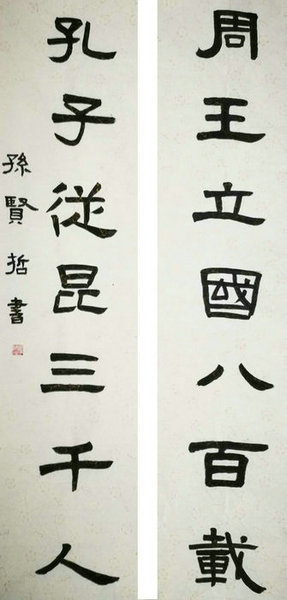 周王立國八百載
孔子從昆三千人
孫賢哲書